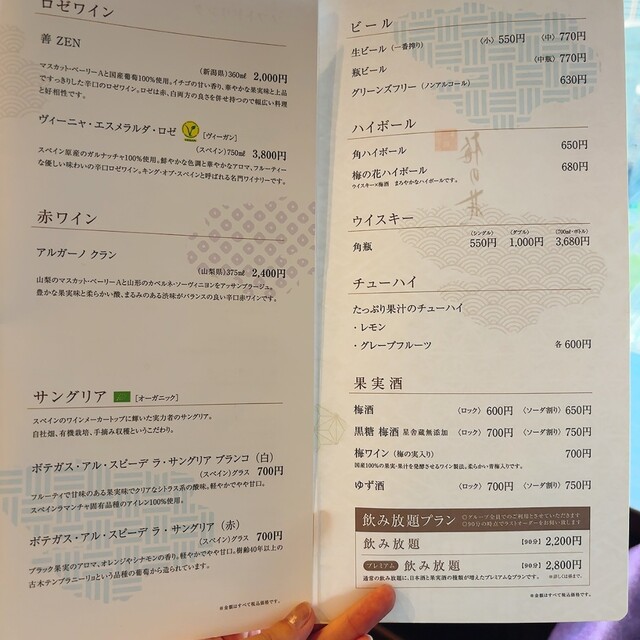 ロゼワイン
善 ZEN
(新潟県)360㎖ 2,000円
マスカット・ベーリーAと国産葡萄100%使用。イチゴの甘い香り、華やかな果実味と上品
ですっきりした辛口のロゼワイン。ロゼは赤、白両方の良さを併せ持つので幅広い料理
と好相性です。
ヴィーニャ・エスメラルダ・ロゼ [ヴィーガン]
(スペイン)750㎖ 3,800円
スペイン原産のガルナッチャ100%使用。鮮やかな色調と華やかなアロマ、フルーティー
な優しい味わいの辛口ロゼワイン。キング・オブ・スペインと呼ばれる名門ワイナリーです。
赤ワイン
アルガーノ クラン
(山梨県)375㎖ 2,400円
山梨のマスカット・ベーリーAと山形のカベルネ・ソーヴィニヨンをアッサンブラージュ。
豊かな果実味と柔らかい酸、まるみのある渋味がバランスの良い辛口赤ワインです。
サングリア [オーガニック]
スペインのワインメーカートップに輝いた実力者のサングリア。
自社畑、有機栽培、手摘み収穫というこだわり。
ボデガス・アル・スピーデ ラ・サングリア ブランコ (白)
(スペイン)グラス 700円
フルーティで甘味のある果実味でクリアなシトラス系の酸味。軽やかでやや甘口。
スペインラマンチャ固有品種のアイレン100%使用。
ボデガス・アル・スピーデ ラ・サングリア (赤)
(スペイン)グラス 700円
ブラック果実のアロマ、オレンジやシナモンの香り。軽やかでやや甘口。樹齢40年以上の
古木テンプラニーリョという品種の葡萄から造られています。
※金額はすべて税込価格です。
ビール
生ビール (一番搾り) 〈小〉550円 〈中〉770円
瓶ビール 〈中瓶〉770円
グリーンズフリー (ノンアルコール) 630円
ハイボール
角ハイボール 650円
梅の花ハイボール 680円
ウイスキー×梅酒 まろやかなハイボールです。
ウイスキー
〈シングル〉 〈ダブル〉 〈700㎖・ボトル〉
角瓶 550円 1,000円 3,680円
チューハイ
たっぷり果汁のチューハイ
・レモン
・グレープフルーツ 各600円
果実酒
梅酒 〈ロック〉600円 〈ソーダ割り〉650円
黒糖 梅酒 星舎蔵無添加 〈ロック〉700円 〈ソーダ割り〉750円
梅ワイン (梅の実入り) 700円
国産100%の果実・果汁を発酵させるワイン製法。柔らかい青梅入りです。
ゆず酒 〈ロック〉700円 〈ソーダ割り〉750円
飲み放題プラン ◎グループ全員でのご利用とさせていただきます
◎90分の時点でラストオーダーをお伺い致します
飲み放題 【90分】2,200円
プレミアム 飲み放題 【90分】2,800円
通常の飲み放題に、日本酒と果実酒の種類が増えたプレミアムなプランです。
※金額はすべて税込価格です。